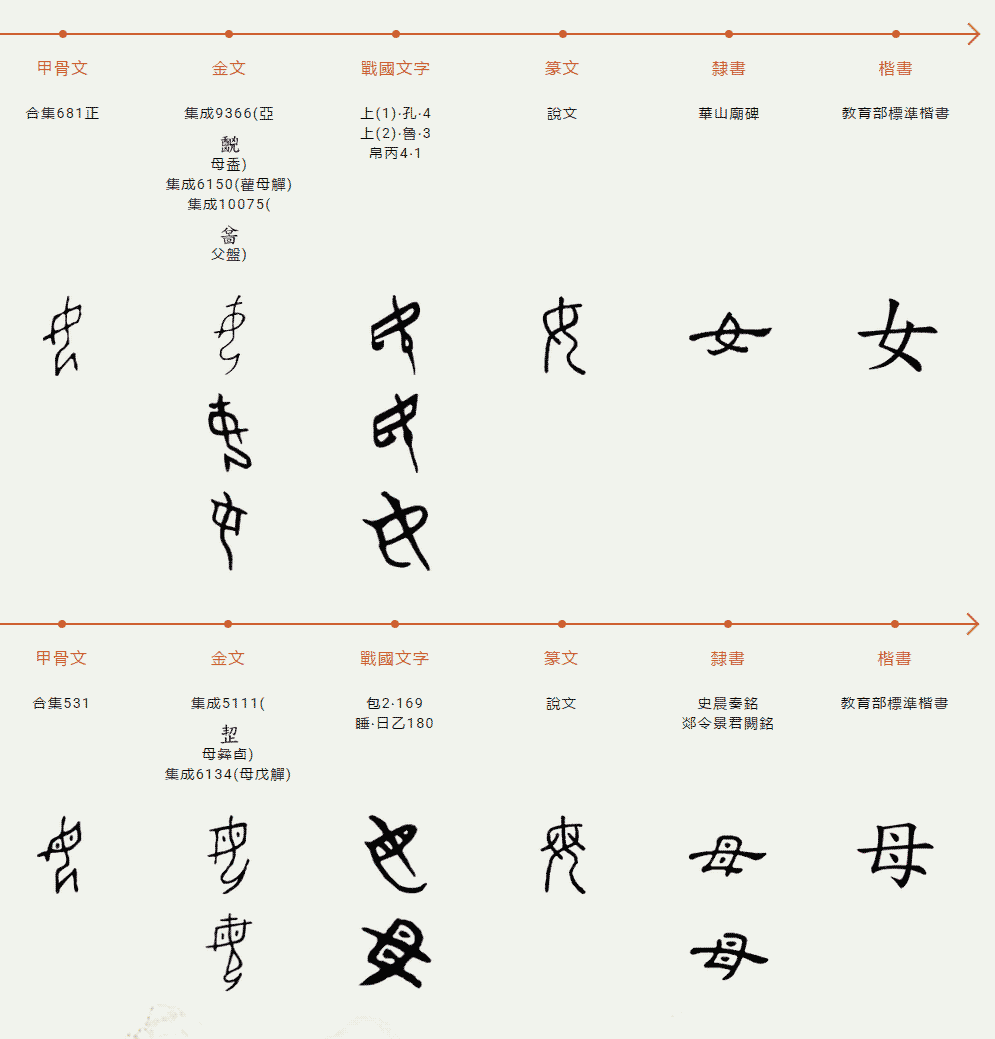 甲骨文 金文 戰國文字 篆文 隸書 楷書
合集681正 集成9366(亞 上(1)·孔·4 說文 華山廟碑 教育部標準楷書
上(2)·魯·3
帛丙4·1
母盉)
集成6150(雚母觶)
集成10075(
父盤)
女
甲骨文 金文 戰國文字 篆文 隸書 楷書
合集531 集成5111( 包2·169 說文 史晨奏銘 教育部標準楷書
睡·日乙180 郯令景君闕銘
母彝卣)
集成6134(母戊觶)
母